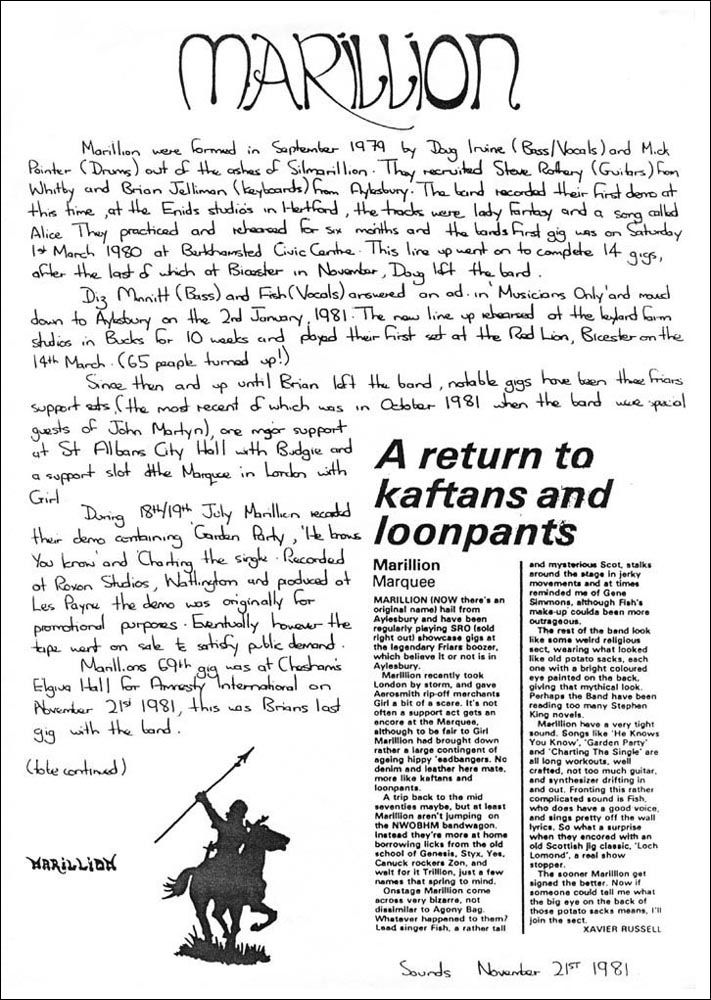 MARILLION
Marillion were formed in September 1979 by Doug Irvine (Bass/Vocals) and Mick
Pointer (Drums) out of the ashes of Silmarillion. They recruited Steve Rothery (Guitars) from
Whitby and Brian Jelliman (keyboards) from Aylesbury. The band recorded their first demo at
this time, at the Enids studios in Hertford, the tracks were lady Fantasy and a song called
Alice They practiced and rehearsed for six months and the bands first gig was on Saturday
1st March 1980 at Berkhamsted Civic Centre. This line up went on to complete 14 gigs,
after the last of which at Bicester in November, Doug left the band.
Diz Minnitt (Bass) and Fish (Vocals) answered an ad. in 'Musicians Only' and moved
down to Aylesbury on the 2nd January, 1981. The new line up rehearsed at the leyland farm
studios in Bucks for 10 weeks and played their first set at the Red Lion, Bicester on the
14th March. (65 people turned up!)
Since then and up until Brian left the band, notable gigs have been three friars
support sets, (the most recent of which was in October 1981 when the band were special
guests of John Martyn), one major support
at St Albans City Hall with Budgie and
a support slot at the Marquee in London with
Girl
During 18th/19th July Marillion recorded
their demo containing 'Garden Party', 'He knows
You know' and 'Charting the single'. Recorded
at Roxon Studios, Wattington and produced at
Les Payne the demo was originally for
promotional purposes. Eventually however the
tape went on sale to satisfy public demand.
Marillions 69th gig was at Chesham's
Elgiva Hall for Amnesty International on
November 21st 1981, this was Brians last
gig with the band.
(to be continued)
MARILLION
A return to
kaftans and
loonpants
Marillion
Marquee
MARILLION (NOW there's an
original name) hail from
Aylesbury and have been
regularly playing SRO (sold
right out) showcase gigs at
the legendary Friars boozer,
which believe it or not is in
Aylesbury.
Marillion recently took
London by storm, and gave
Aerosmith rip-off merchants
Girl a bit of a scare. It's not
often a support act gets an
encore at the Marquee,
although to be fair to Girl
Marillion had brought down
rather a large contingent of
ageing hippy 'eadbangers. No
denim and leather here mate,
more like kaftans and
loonpants.
A trip back to the mid
seventies maybe, but at least
Marillion aren't jumping on
the NWOBHM bandwagon.
Instead they're more at home
borrowing licks from the old
school of Genesis, Styx, Yes,
Canuck rockers Zon, and
wait for it Trillion, just a few
names that spring to mind.
Onstage Marillion come
across very bizarre, not
dissimilar to Agony Bag.
Whatever happened to them?
Lead singer Fish, a rather tall
and mysterious Scot, stalks
around the stage in jerky
movements and at times
reminded me of Gene
Simmons, although Fish's
make-up coulda been more
outrageous.
The rest of the band look
like some weird religious
sect, wearing what looked
like old potato sacks, each
one with a bright coloured
eye painted on the back,
giving that mythical look.
Perhaps the Band have been
reading too many Stephen
King novels.
Marillion have a very tight
sound. Songs like 'He Knows
You Know', 'Garden Party'
and 'Charting The Single' are
all long workouts, well
crafted, not too much guitar,
and synthesizer drifting in
and out. Fronting this rather
complicated sound is Fish,
who does have a good voice,
and sings pretty off the wall
lyrics. So what a surprise
when they encored with an
old Scottish jig classic, 'Loch
Lomond', a real show
stopper.
The sooner Marillion get
signed the better. Now if
someone could tell me what
the big eye on the back of
those potato sacks means, I'll
join the sect.
XAVIER RUSSELL
Sounds November 21ST 1981